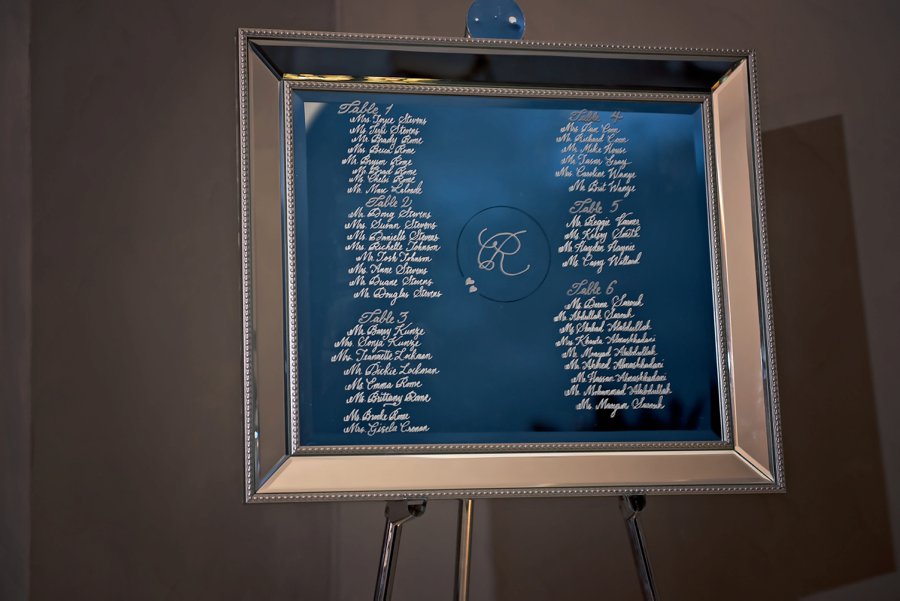 Table 1
Mrs. Joyce Stevens
Ms. Teri Stevens
Mr. Brady Rome
Mrs. Rome
Mr. Rome
Mr. Brad Rome
Ms. Chelsi Rome
Mr. Marc Lalonde
Table 2
Mr. Doug Stevens
Mrs. Susan Stevens
Ms. Danielle Stevens
Mrs. Richelle Johnson
Mr. Josh Johnson
Ms. Anne Stevens
Mr. Duane Stevens
Mr. Douglas Stevens
Table 3
Mr. Barry Kunze
Mrs. Sonja Kunze
Mrs. Jeannette Lockman
Mr. Dickie Lockman
Ms. Emma Rome
Ms. Brittany Rome
Ms. Brooke Rome
Mrs. Gisela Cronon
R
Table 4
Mrs. Pam Coon
Mr. Richard Coon
Mr. Mike House
Ms. Tasm
Mrs. Caroline Wange
Mr. Bret Wange
Table 5
Mr. Reggie Varner
Ms. Kelsey Smith
Mr. Hayden Haynie
Ms. Casey Willard
Table 6
Ms. Sarouk
Mr. Abdullah Sarouk
Ms. Abdullah
Mrs. Khawla Almashhadani
Mr. Abdullah
Mr. Ahmed Almashhadani
Mr. Hassan Almashhadani
Mr. Mohammad Abdullah
Ms. Maryam Sarouk